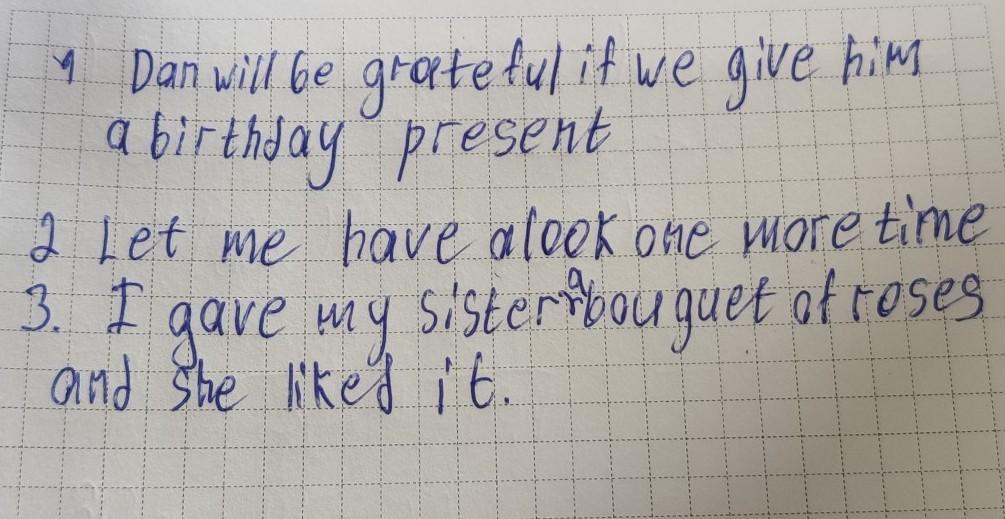 1 Dan will be grateful if we give him
a birthday present
2 Let me have a look one more time
3. I gave my sister a bouquet of roses
and she liked it.